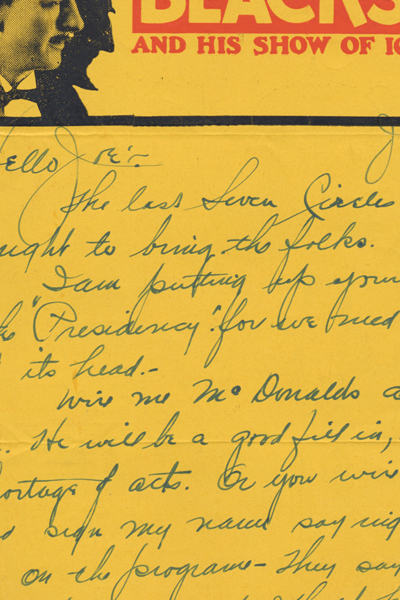 BLACKS
AND HIS SHOW OF 10
ello Joe:-
The last Seven Circle
ught to bring the folks.
I am putting up your
he "Presidency" for we need
its head.-
Wire me McDonalds a
. He will be a good fill in,
ortage of acts. Or you wire
d sign my name saying
on the programe - They say